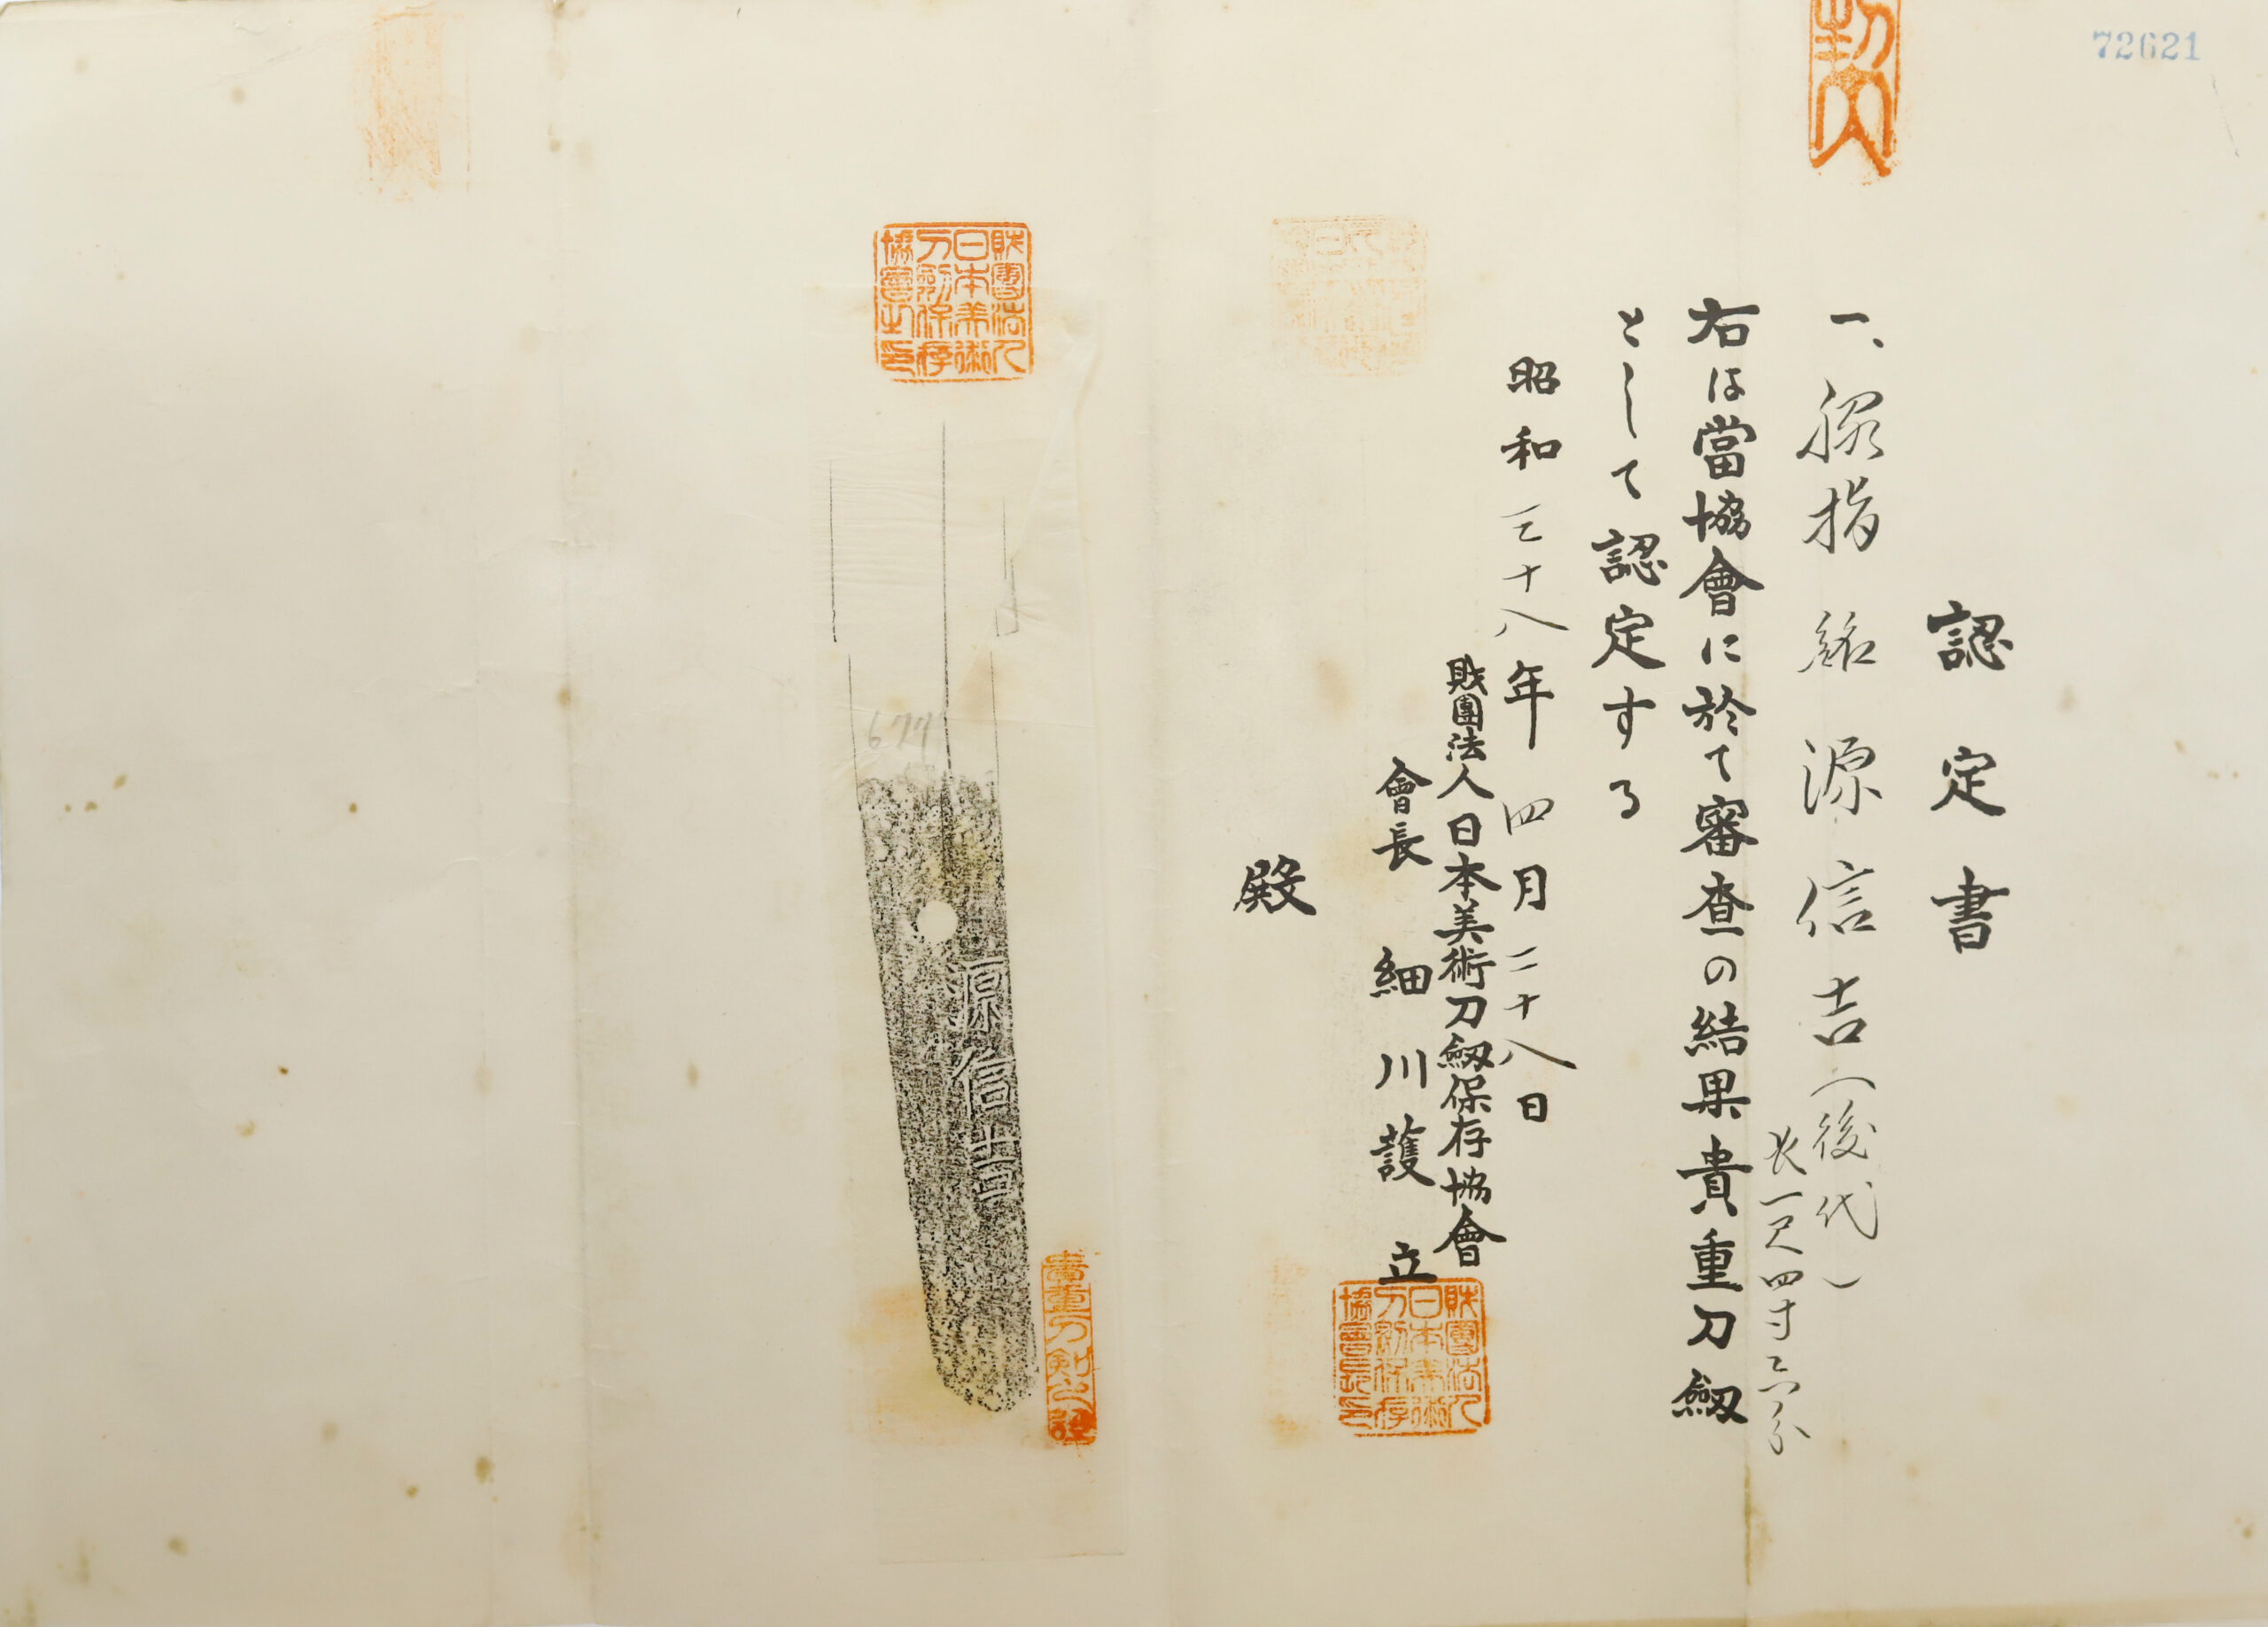 72621
認定書
一、脇指 銘 源信吉(後代)
長一尺四寸六分
右は當協會に於て審査の結果貴重刀劔
として認定する
昭和三十八年四月二十八日
財團法人日本美術刀劔保存協會
會長 細川護立
財團法人日本美術刀劍保存協會長印
殿
財團法人日本美術刀劍保存協會之印
677
源信吉
貴重刀剣之証